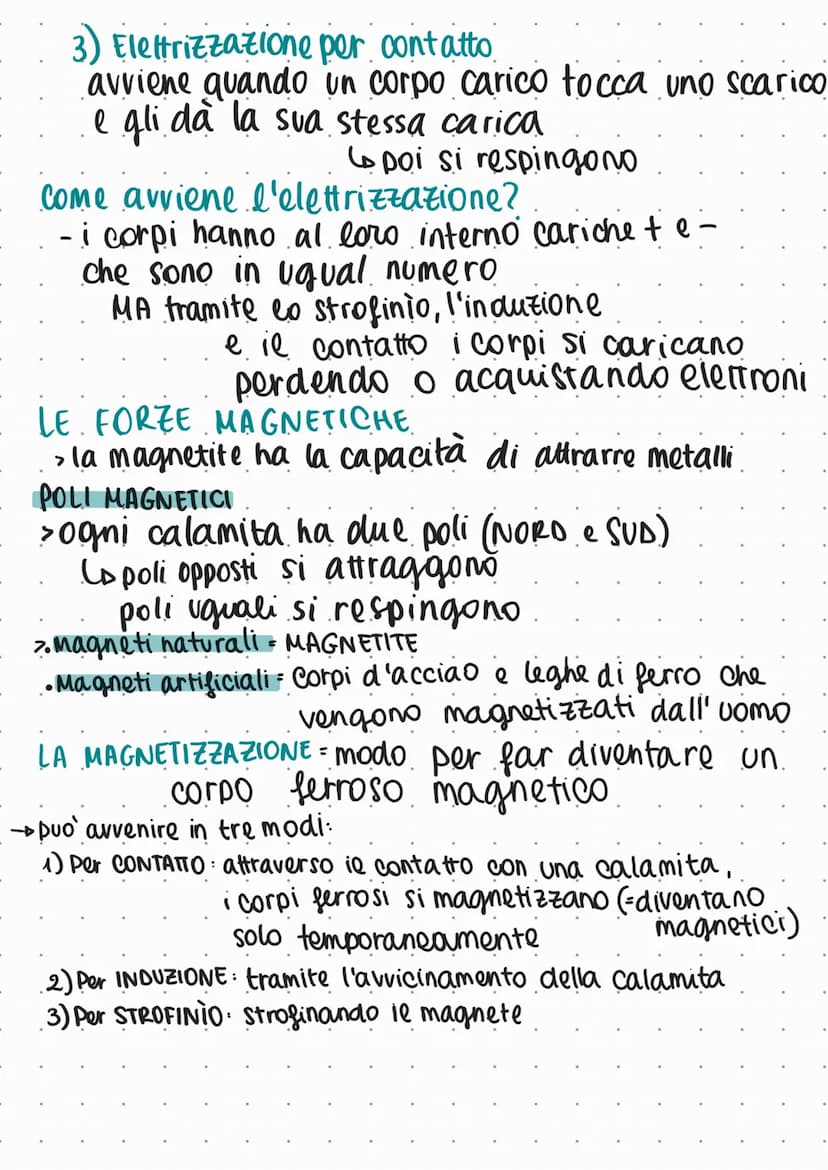 3) Elettrizzazione per contatto
avviene quando un corpo carico tocca uno scarico
e gli dà la sua stessa carica
↳ poi si respingono
Come avviene l'elettrizzazione?
- i corpi hanno al loro interno cariche + e -
che sono in ugual numero
MA tramite lo strofinìo, l'induzione
e il contatto i corpi si caricano
perdendo o acquistando elettroni
LE FORZE MAGNETICHE
> la magnetite ha la capacità di attrarre metalli
POLI MAGNETICI
> ogni calamita ha due poli (NORD e SUD)
↳ poli opposti si attraggono
poli uguali si respingono
>. magneti naturali = MAGNETITE
. Magneti artificiali = Corpi d'acciao e leghe di ferro che
vengono magnetizzati dall'uomo
LA MAGNETIZZAZIONE = modo per far diventare un
corpo ferroso magnetico
→ può avvenire in tre modi:
1) Per CONTATTO: attraverso il contatto con una calamita,
i corpi ferrosi si magnetizzano (=diventano
magnetici)
solo temporaneamente
2) Per INDUZIONE: tramite l'avvicinamento della calamita
3) Per STROFINÌO: strofinando il magnete